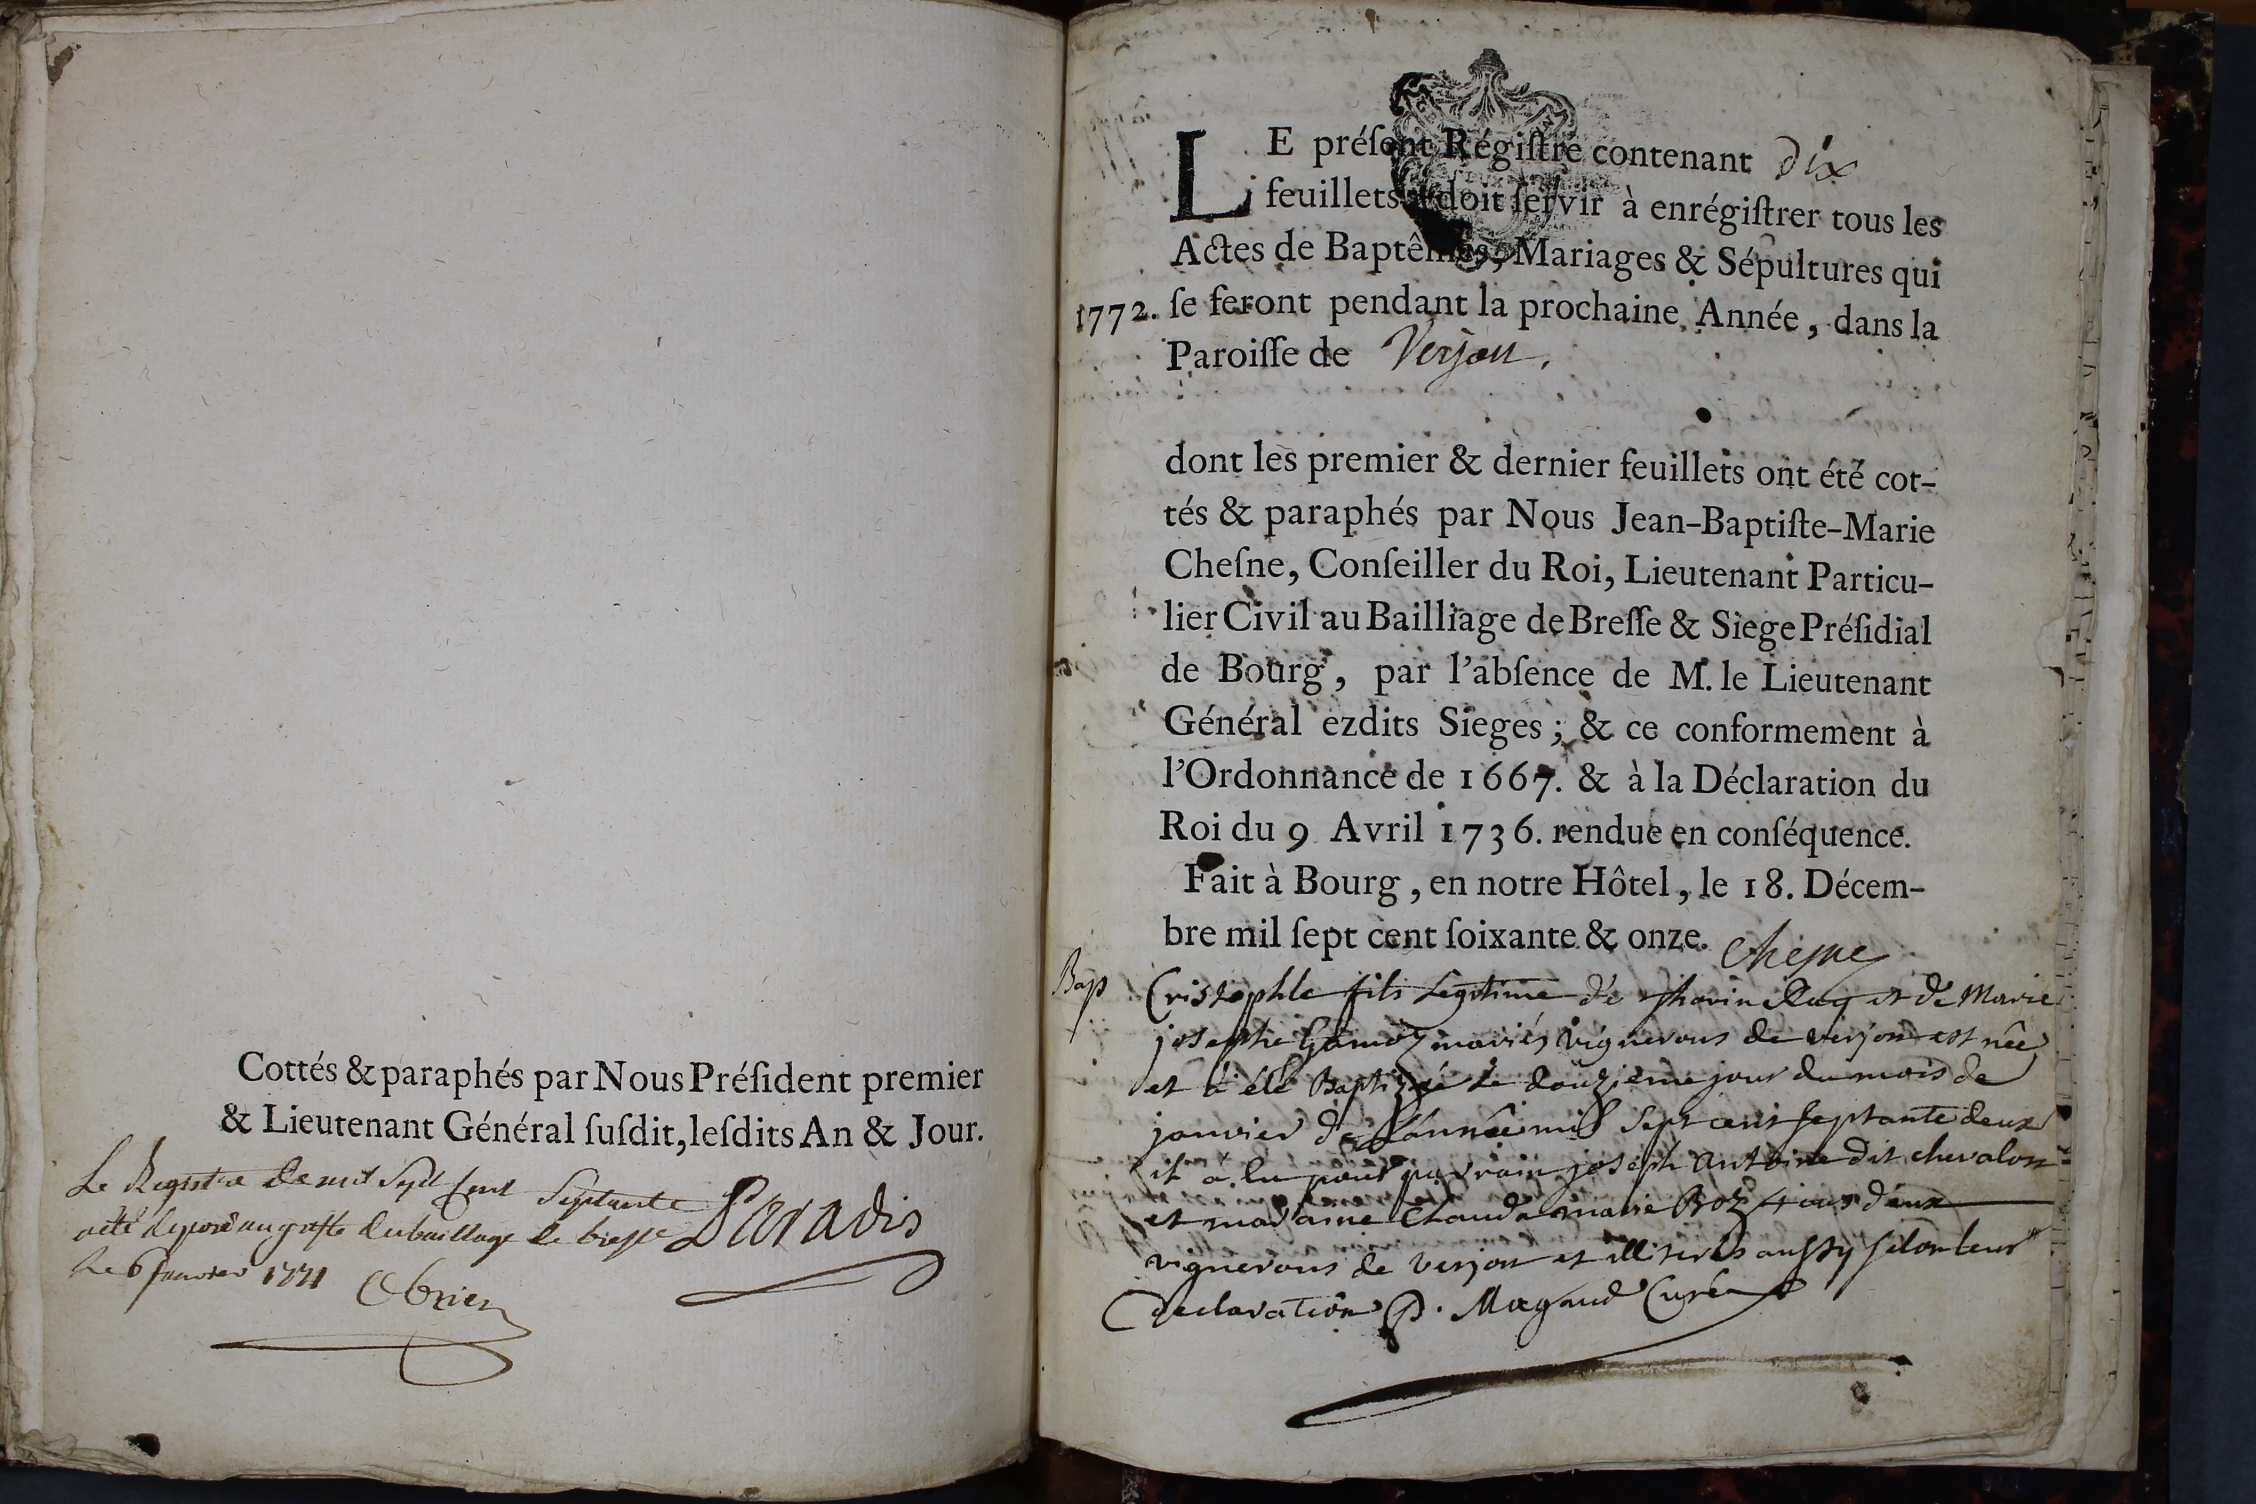 Cottés & paraphés par Nous Préſident premier
& Lieutenant Général ſuſdit, leſdits An & Jour.
Le Registre de mil Sept Cent Septante
a été deposé au greffe du bailliage de bresse
Le 6 Janvier 1771
Paradis
LE préſent Régiſtre contenant dix
feuillets doit ſervir à enrégiſtrer tous les
Actes de Baptêmes, Mariages & Sépultures qui
1772. ſe feront pendant la prochaine Année, dans la
Paroiſſe de Verjon.
dont les premier & dernier feuillets ont été cot-
tés & paraphés par Nous Jean-Baptiſte-Marie
Cheſne, Conſeiller du Roi, Lieutenant Particu-
lier Civil au Bailliage de Breſſe & Siege Préſidial
de Bourg, par l'abſence de M. le Lieutenant
Général ezdits Sieges ; & ce conformement à
l'Ordonnance de 1667. & à la Déclaration du
Roi du 9 Avril 1736. rendue en conſéquence.
Fait à Bourg, en notre Hôtel, le 18. Décem-
bre mil ſept cent ſoixante & onze.
Chesne
Bap
Cristophle fils Legitime de et de Marie
josephe mariés vignerons de verjon est née
et a été Baptizé Le douzième jour du mois de
janvier de L'année mil sept cent septante deux
il a eu pour parrain joseph antoine dit chevalon
et maraine Clauda marie Roz tous deux
vignerons de verjon et illiterés aussy selon leur
declaration P. Magaud Curé